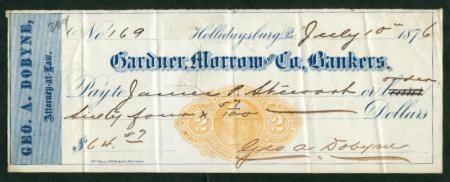 209
GEO. A. DOBYNE,
Attorney at Law.
No 169 Hollidaysburg, Pa. July 10th 1876
Gardner, Morrow and Co. Bankers.
Pay to James P. Stewart or order
sixty four & 57/100 Dollars
$64.57
2 2
Geo A Dobyne